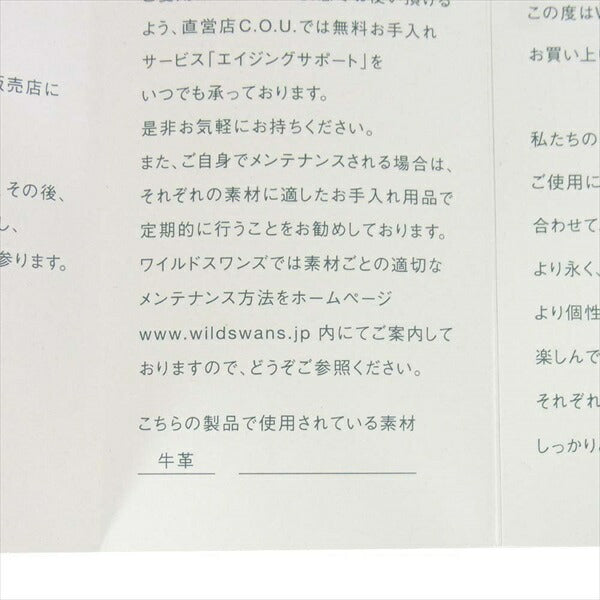 販売店に
その後、
し、
参ります。
よう、直営店C.O.U.では無料お手入れ
サービス「エイジングサポート」を
いつでも承っております。
是非お気軽にお持ちください。
また、ご自身でメンテナンスされる場合は、
それぞれの素材に適したお手入れ用品で
定期的に行うことをお勧めしております。
ワイルドスワンズでは素材ごとの適切な
メンテナンス方法をホームページ
www.wildswans.jp 内にてご案内して
おりますので、どうぞご参照ください。
こちらの製品で使用されている素材
牛革
この度は
お買い上
私たちの
ご使用に
合わせて
より永く、
より個性
楽しんで
それぞれ
しっかり